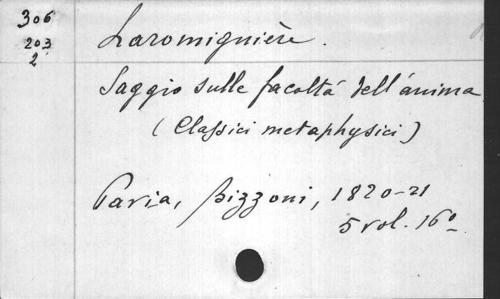 306
203
2
Laromiguière.
Saggio sulle facoltá dell'ánima
(Classici metaphysici)
Pavia, Bizzoni, 1820-21
5 vol. 16º